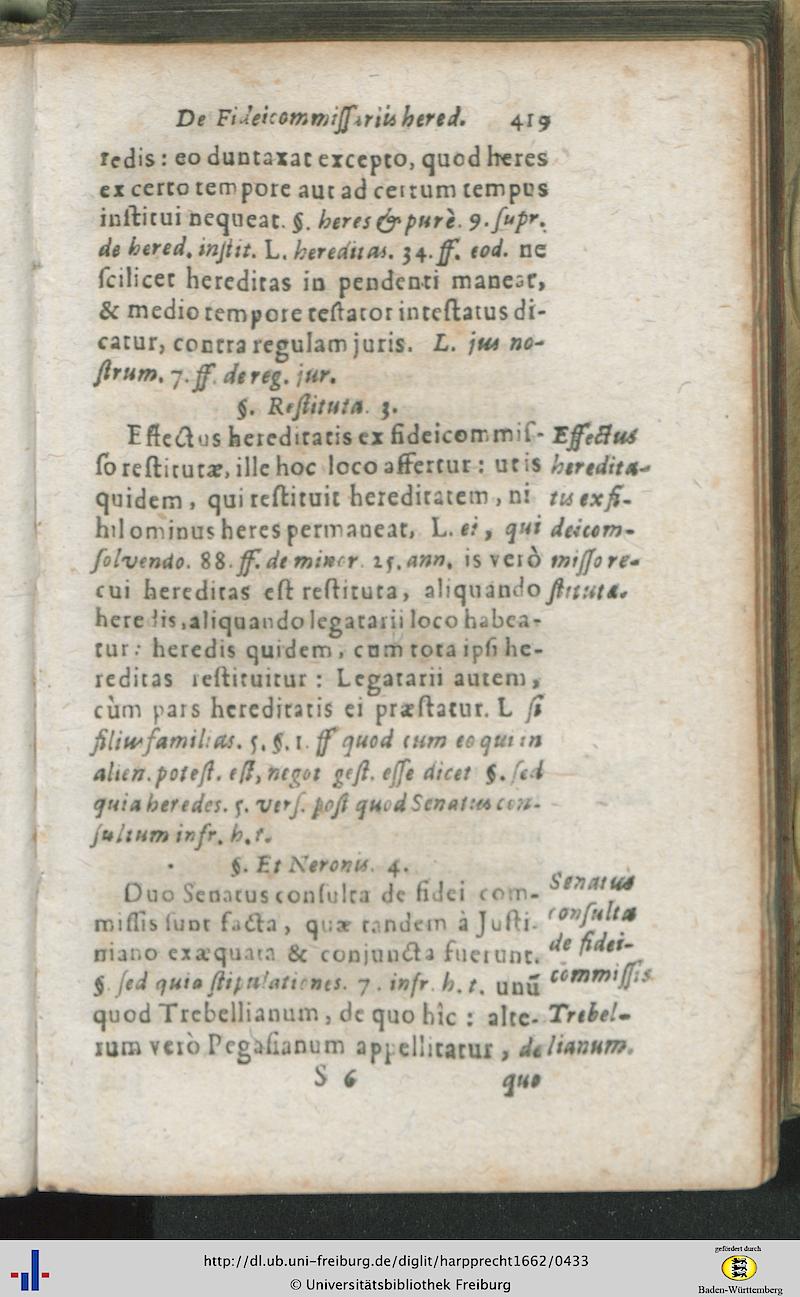 De Fideicommissariis hered. 419
redis: eo duntaxat excepto, quod heres
ex certo tempore aut ad certum tempus
institui nequeat. §. heres & purè. 9. supr.
de hered. instit. L. hereditas. 34. ff. eod. ne
scilicet hereditas in pendenti maneat,
& medio tempore testator intestatus di-
catur, contra regulam juris. L. jus no-
strum. 7. ff. de reg. jur.
§. Restituta. 3.
Effectus hereditatis ex fideicommis-
so restitutæ, ille hoc loco affertur: ut is
quidem, qui restituit hereditatem, ni
hilominus heres permaneat, L. ei, qui
solvendo. 88. ff. de minor. 25. ann. is verò
cui hereditas est restituta, aliquando
heredis, aliquando legatarii loco habea-
tur: heredis quidem, cum tota ipsi he-
reditas restituitur: Legatarii autem,
cùm pars hereditatis ei præstatur. L si
filius familias. 5. §. 1. ff quod cum eo qui in
alien. potest. est, negot gest. esse dicet §. sed
quia heredes. 5. vers. post quod Senatus con-
sultum infr. h. t.
Effectus
heredita-
tis ex fi-
deicom-
misso re-
stituta.
§. Et Neronis. 4.
Duo Senatus consulta de fidei com-
missis sunt facta, quæ tandem à Justi-
niano exæquata & conjuncta fuerunt.
§. sed quia stipulationes. 7. infr. h. t. unũ
quod Trebellianum, de quo hîc: alte-
rum verò Pegasianum appellitatur, de
Senatus
consulta
de fidei-
commissis
Trebel-
lianum.
S 6 quo
http://dl.ub.uni-freiburg.de/diglit/harpprecht1662/0433
© Universitätsbibliothek Freiburg
gefördert durch
Baden-Württemberg